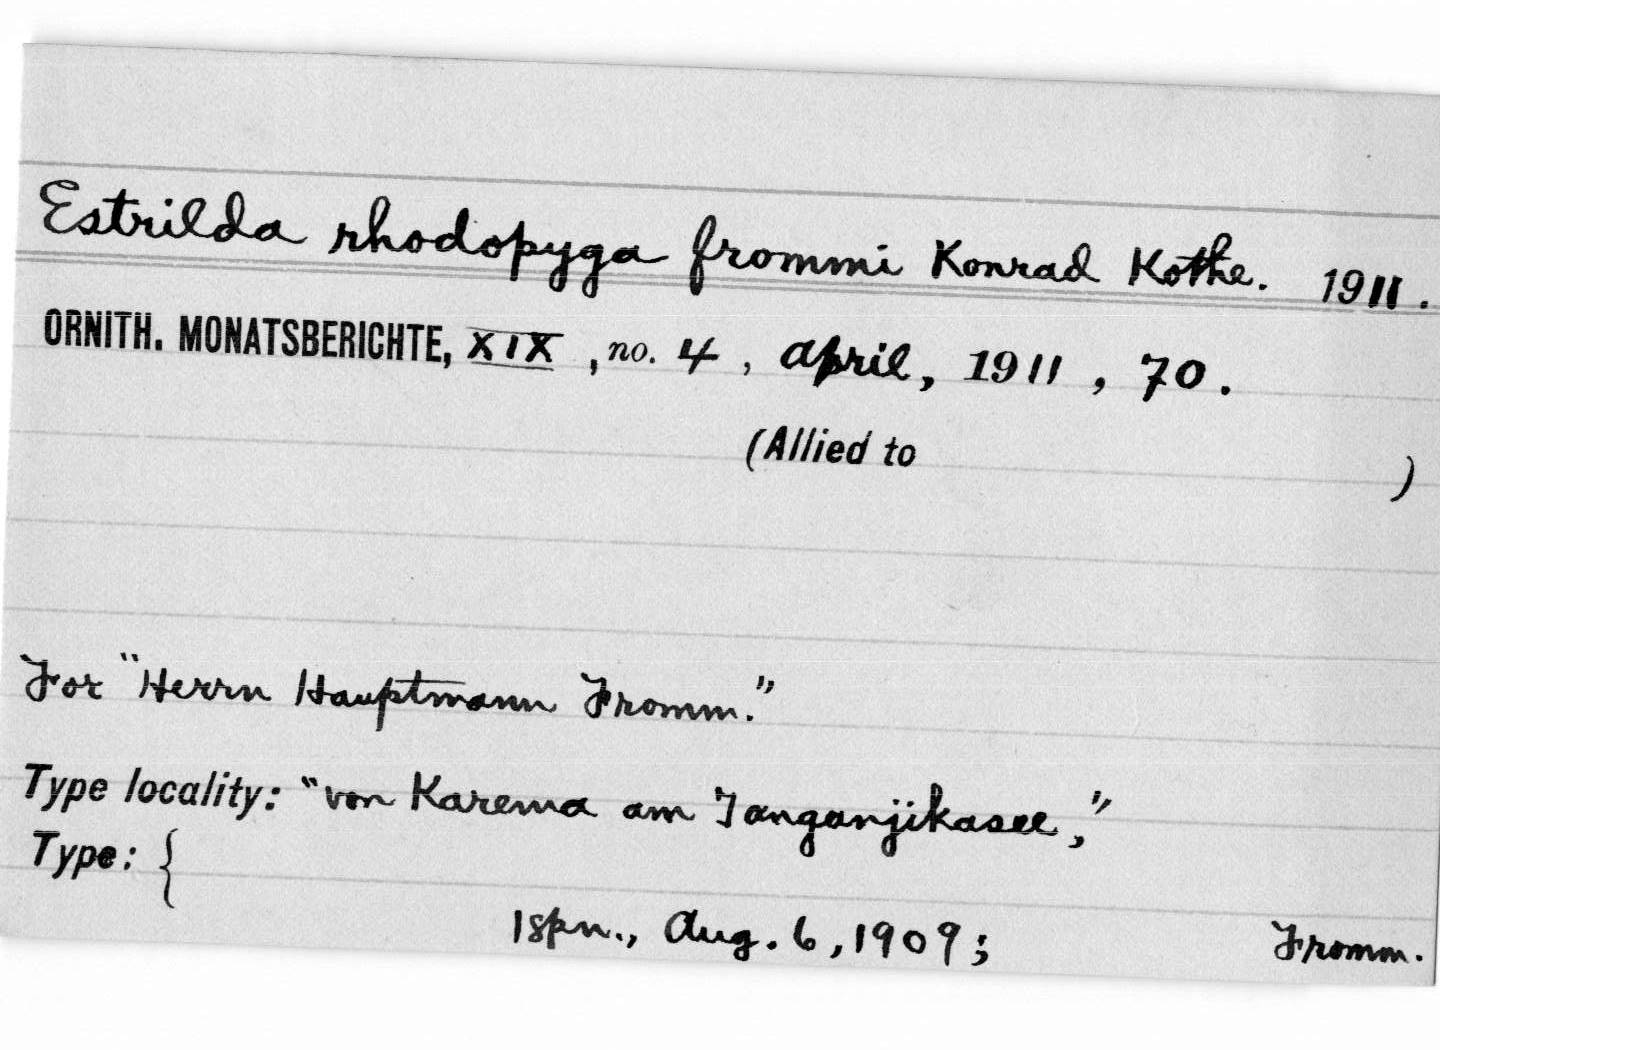 Estrilda rhodopyga frommi Konrad Kothe. 1911.
ORNITH. MONATSBERICHTE, XIX, no. 4, April, 1911, 70.
(Allied to )
For "Herrn Hauptmann Fromm."
Type locality: "von Karema am Tanganjikasee,"
Type: {
1 spn., Aug. 6, 1909; Fromm.